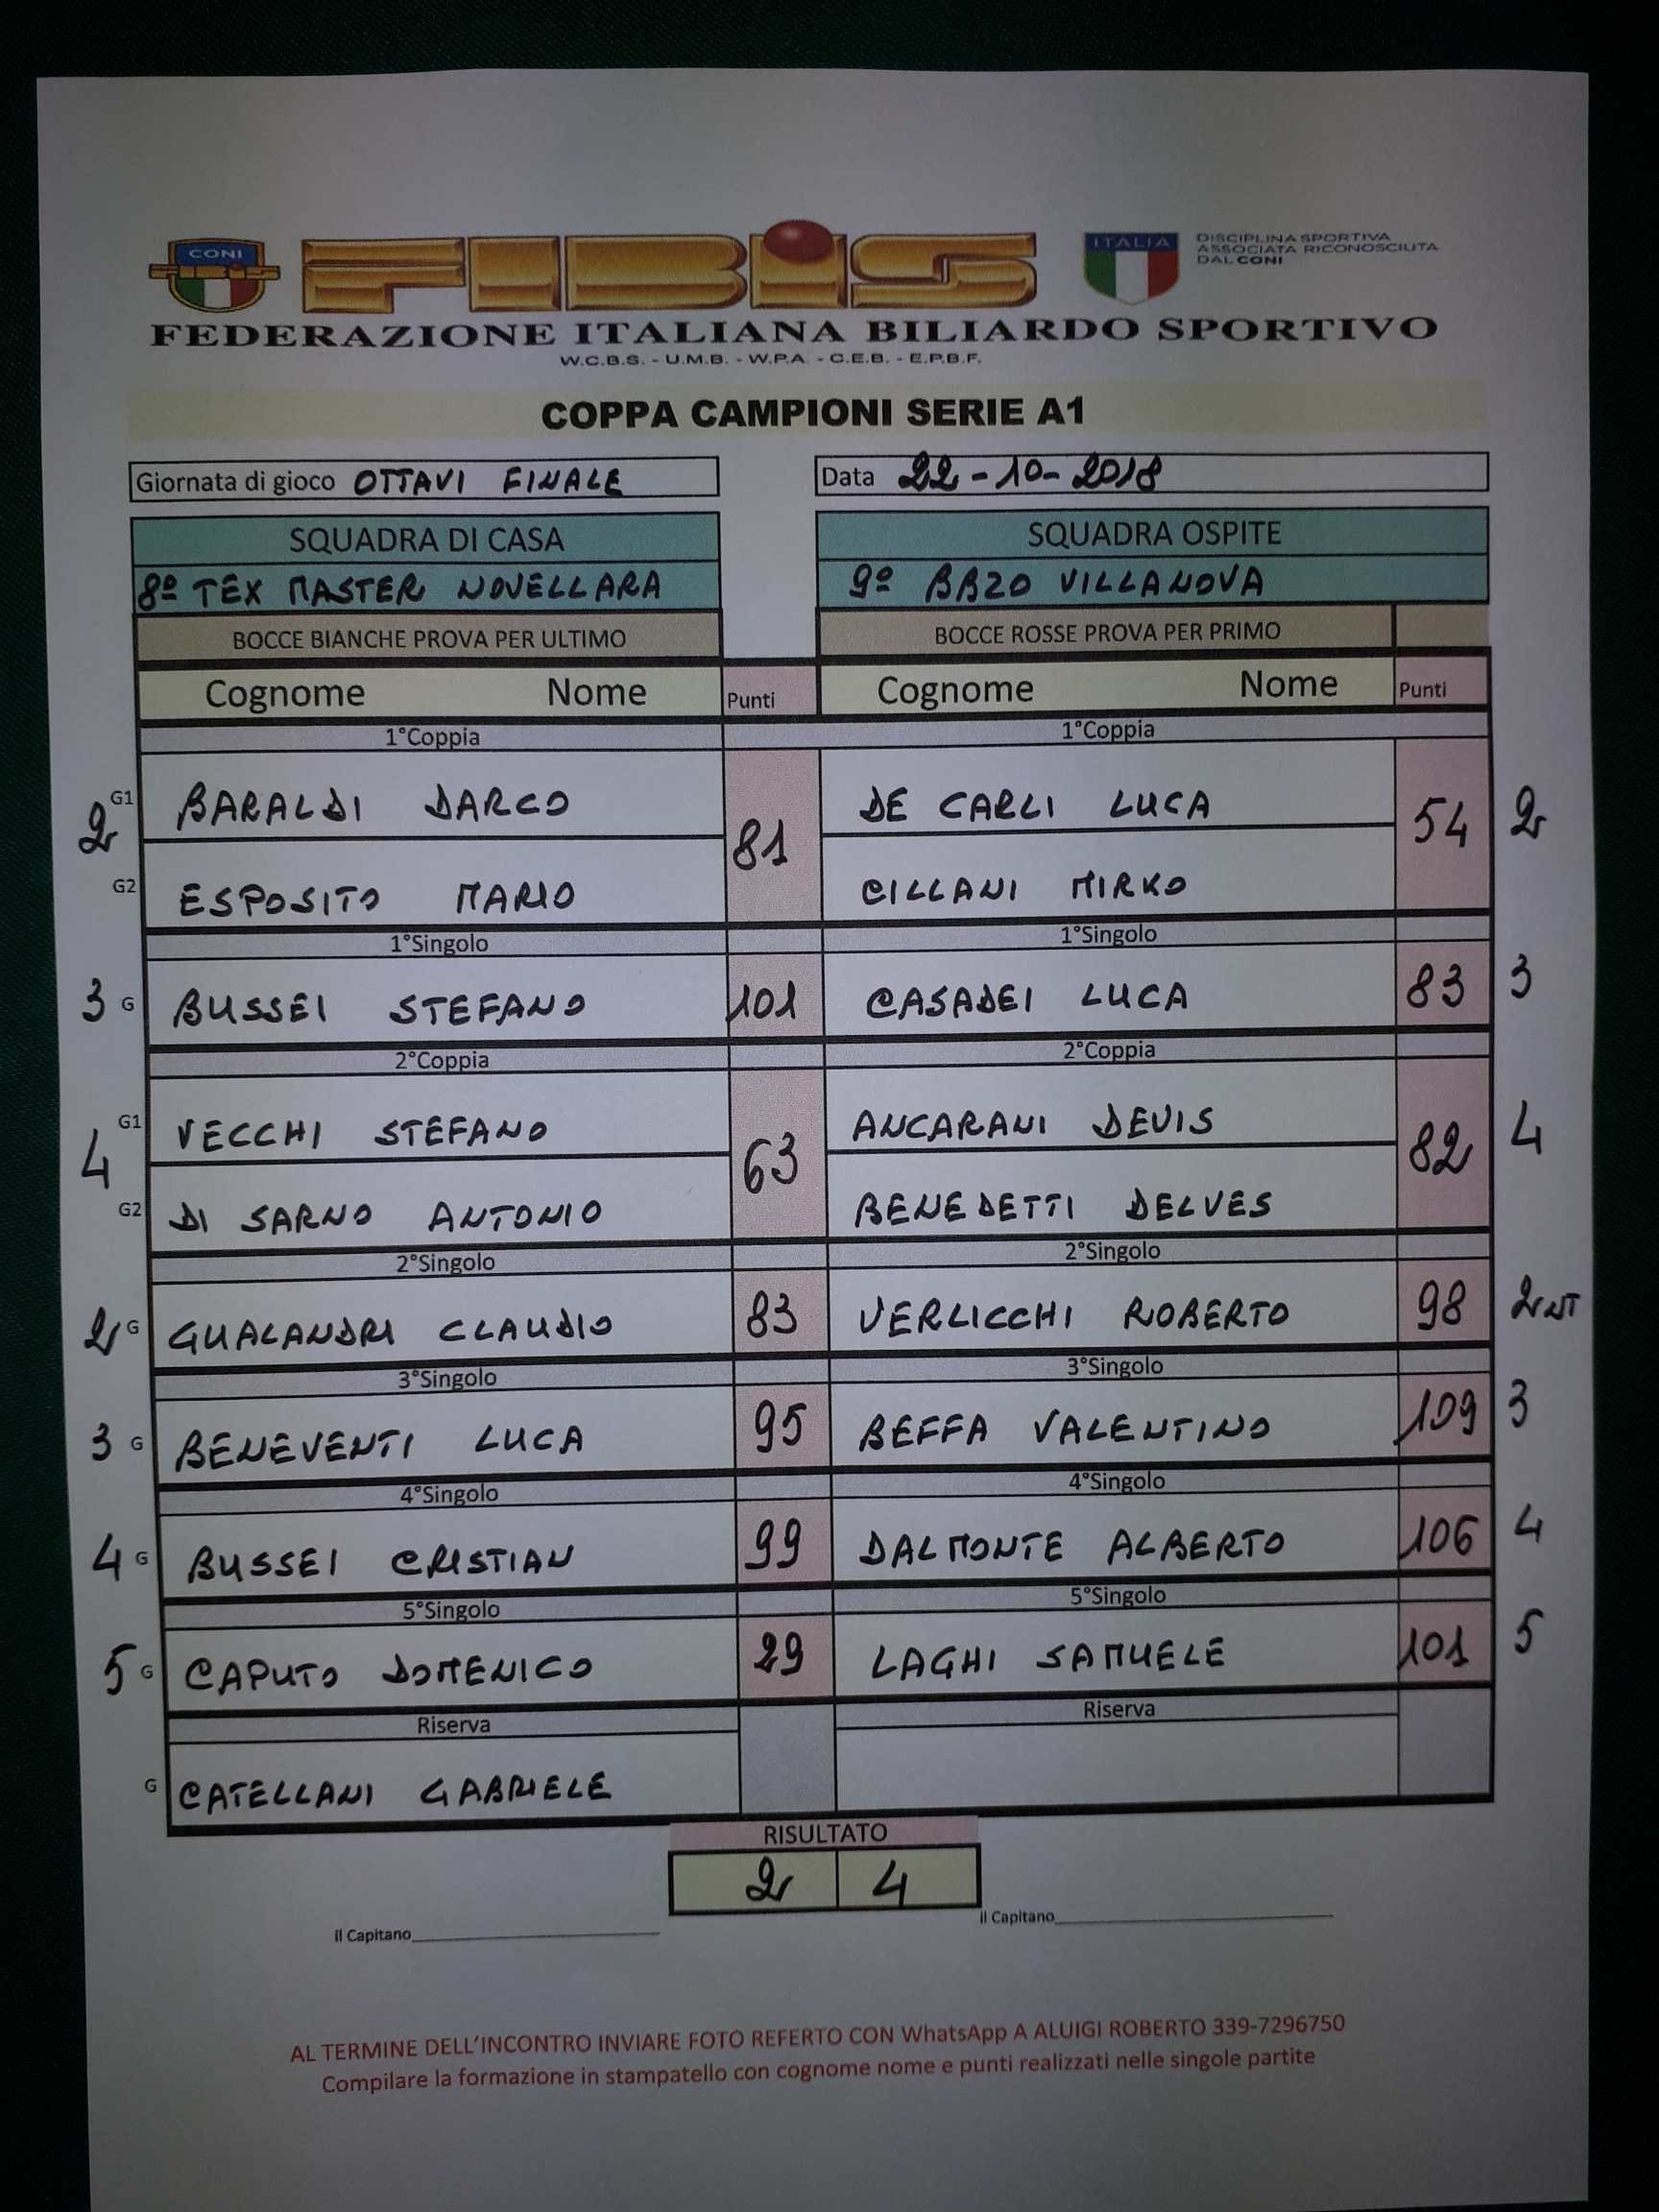 CONI
FIBIS
ITALIA
DISCIPLINA SPORTIVA
ASSOCIATA RICONOSCIUTA
DAL CONI
FEDERAZIONE ITALIANA BILIARDO SPORTIVO
W.C.B.S. - U.M.B. - W.P.A. - C.E.B. - E.P.B.F.
COPPA CAMPIONI SERIE A1
Giornata di gioco OTTAVI FINALE Data 22-10-2018
SQUADRA DI CASA SQUADRA OSPITE
8º TEX MASTER NOVELLARA 9º BBZO VILLANOVA
BOCCE BIANCHE PROVA PER ULTIMO BOCCE ROSSE PROVA PER PRIMO
Cognome Nome Punti Cognome Nome Punti
1°Coppia 1°Coppia
2 G1 BARALDI DARCO 81 DE CARLI LUCA 54 2
G2 ESPOSITO MARIO CILLANI MIRKO
1°Singolo 1°Singolo
3 G BUSSEI STEFANO 101 CASADEI LUCA 83 3
2°Coppia 2°Coppia
4 G1 VECCHI STEFANO 63 ANCARANI DEVIS 82 4
G2 DI SARNO ANTONIO BENEDETTI DELVES
2°Singolo 2°Singolo
2 G GUALANDRI CLAUDIO 83 VERLICCHI ROBERTO 98 2 NT
3°Singolo 3°Singolo
3 G BENEVENTI LUCA 95 BEFFA VALENTINO 109 3
4°Singolo 4°Singolo
4 G BUSSEI CRISTIAN 99 DALMONTE ALBERTO 106 4
5°Singolo 5°Singolo
5 G CAPUTO DOMENICO 29 LAGHI SAMUELE 101 5
Riserva Riserva
G CATELLANI GABRIELE
RISULTATO
2 4
il Capitano il Capitano
AL TERMINE DELL'INCONTRO INVIARE FOTO REFERTO CON WhatsApp A ALUIGI ROBERTO 339-7296750
Compilare la formazione in stampatello con cognome nome e punti realizzati nelle singole partite